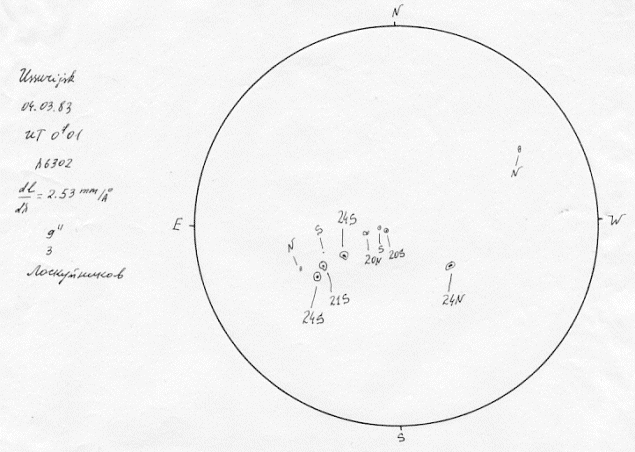 Ussurijsk
04.03.83
UT 0ʰ01
λ6302
dl/dλ = 2.53 mm/Å
9"
3
Лоскутников
N
N
E
W
24S
S
N
20N
S
20S
21S
24S
24N
S